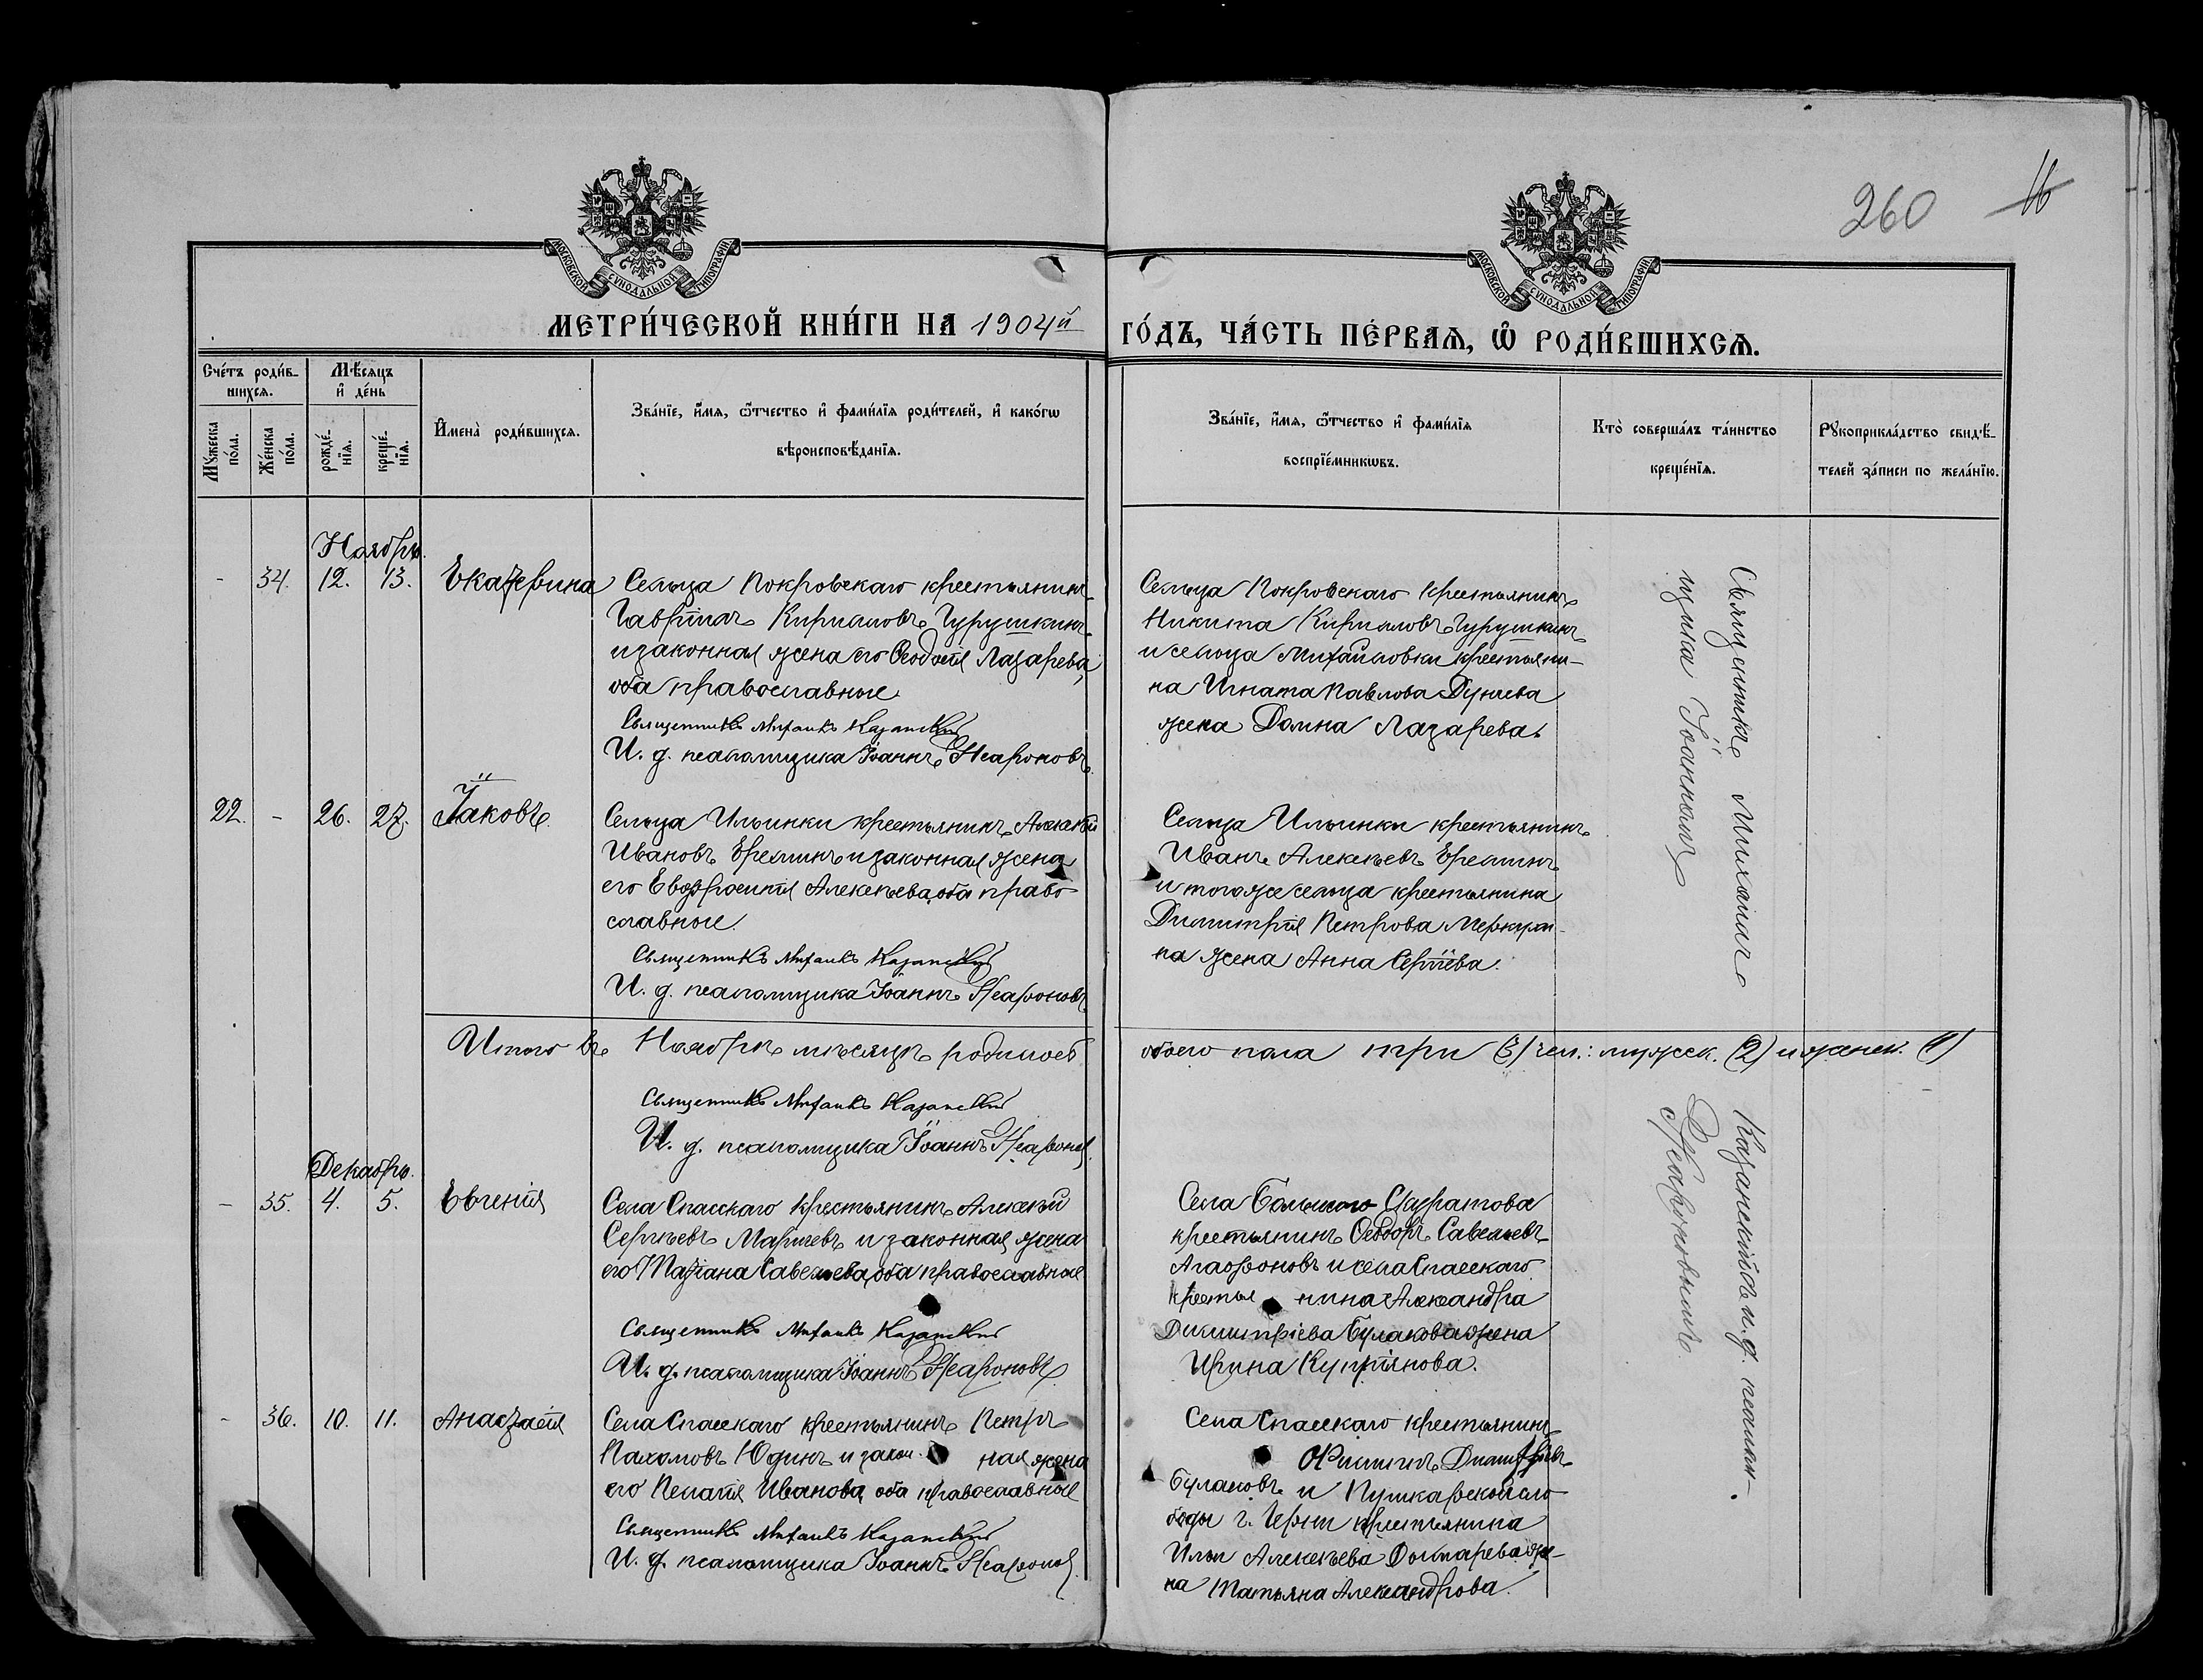 260
16
МОСКОВСКОЙ СУНОДАЛЬНОЙ ТИПОГРАФІИ
МОСКОВСКОЙ СУНОДАЛЬНОЙ ТИПОГРАФІИ
МЕТРИ́ЧЕСКОЙ КНИ́ГИ НА 1904й
ГО́ДЪ, ЧА́СТЬ ПЕ́РВАѦ, Ѡ҆ РОДИ́ВШИХСѦ.
Сче́тъ роди́в-
шихсѧ.
Мѣ́сѧцъ
и҆ де́нь
Мꙋ́жеска
по́ла.
Же́нска
по́ла.
рожде́-
нїѧ.
креще́-
нїѧ.
И҆мена̀ роди́вшихсѧ.
Зва́нїе, и҆́мѧ, ѻ҆́тчество и҆ фами́лїѧ роди́телей, и҆ како́гѡ
вѣроисповѣ́данїѧ.
Зва́нїе, и҆́мѧ, ѻ҆́тчество и҆ фами́лїѧ
воспрїе́мникѡвъ.
Кто̀ соверша́лъ та́инство
креще́нїѧ.
Рꙋкоприкла́дство свидѣ́-
телей за́писи по жела́нїю.
Ноябрь.
- 34. 12. 13. Екатерина
Сельца Покровскаго крестьянинъ
Гавріилъ Кирилловъ Чурушкинъ
и законная жена его Ѳеодосія Лазарева,
оба православные.
Священникъ Михаилъ Казанскій
И. д. псаломщика Іоаннъ Неароновъ.
Сельца Покровскаго крестьянинъ
Никита Кирилловъ Чурушкинъ
и сельца Михайловки крестьяни-
на Игната Павлова Дунаева
жена Домна Лазарева.
22. - 26. 27. Іаковъ.
Сельца Ильинки крестьянинъ Алексѣй
Ивановъ Ереминъ и законная жена
его Евфросинія Алексѣева, оба право-
славные.
Священникъ Михаилъ Казанскій
И. д. псаломщика Іоаннъ Неароновъ.
Сельца Ильинки крестьянинъ
Иванъ Алексѣевъ Ереминъ
и того же сельца крестьянина
Димитрія Петрова
на жена Анна Сергіева.
Итого въ Ноябрѣ мѣсяцѣ родилось
обоего пола три (3) чел.: мужск. (2) и женск. (1)
Священникъ Михаилъ Казанскій
И. д. псаломщика Іоаннъ Неароновъ.
Декабрь.
- 35. 4. 5. Евгенія
Села Спасскаго крестьянинъ Алексѣй
Сергѣевъ Маричевъ и законная жена
его Татіана Савельева, оба православные
Священникъ Михаилъ Казанскій
И. д. псаломщика Іоаннъ Неароновъ
Села Большого Скуратова
крестьянинъ Ѳеодоръ Савельевъ
Агафоновъ и села Спасскаго
крестья нина Александра
Димитріева Булакова жена
Ирина Купріянова.
- 36. 10. 11. Анастасія
Села Спасскаго крестьянинъ Петръ
Пахомовъ Юдинъ и закон. ная жена
его Пелагія Иванова, оба православные
Священникъ Михаилъ Казанскій
И. д. псаломщика Іоаннъ Неароновъ.
Села Спасскаго крестьянинъ
Филиппъ Димитріевъ
Булаковъ и Пушкарской сло-
боды г. Черни крестьянина
Ильи Алексѣева жe-
на Татьяна Александрова.
Священникъ Михаилъ
Казанскій и. д. псалом-
щика Іоанномъ
Неароновымъ